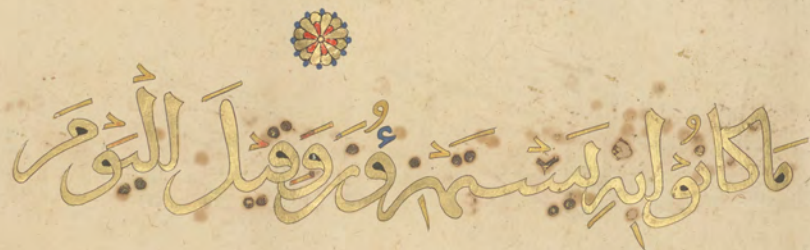 مَا كَانُوا بِهِ يَسْتَهْزِءُونَ وَقِيلَ الْيَوْمَ